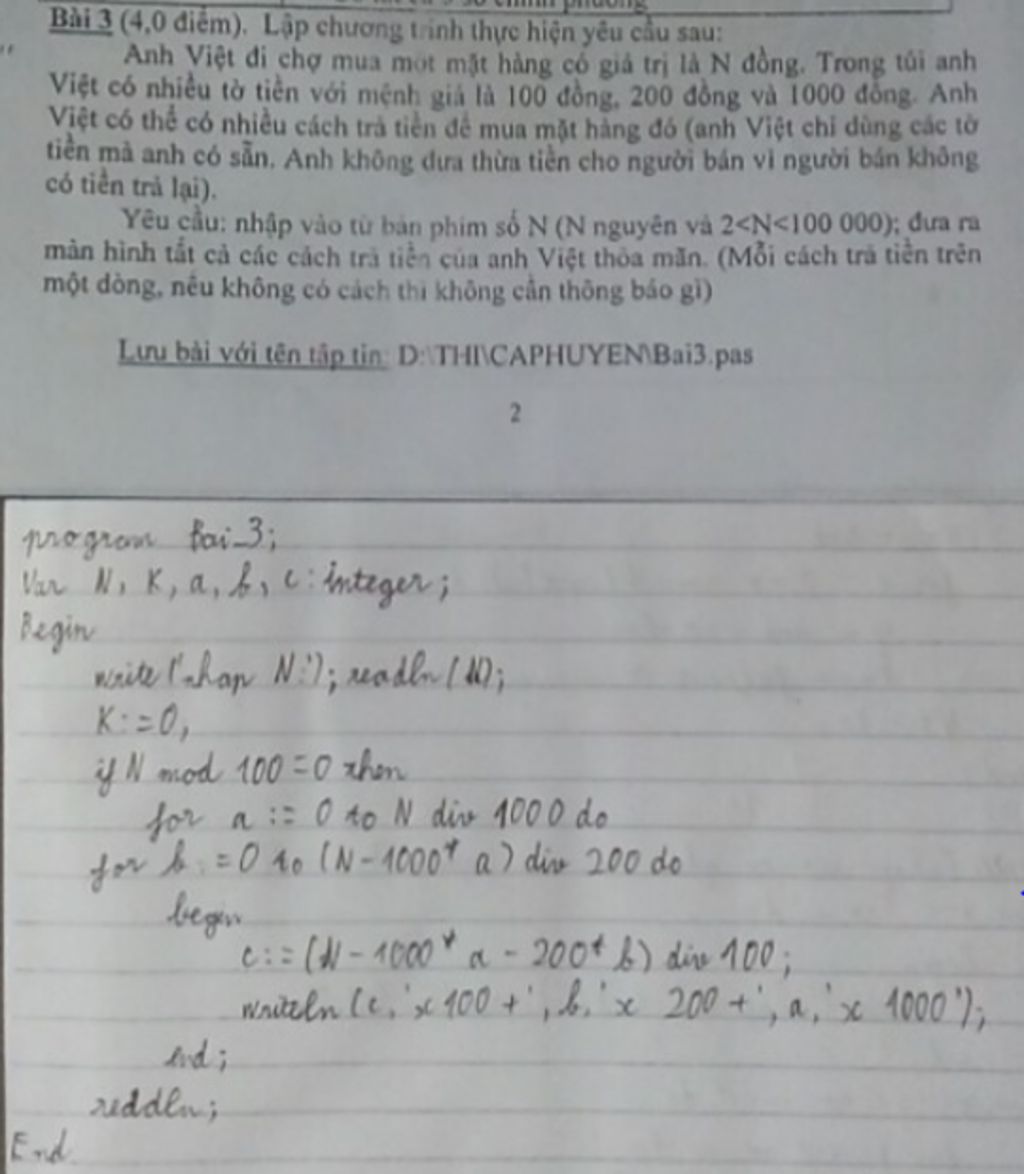 Bài 3 (4,0 điểm). Lập chương trình thực hiện yêu cầu sau:
Anh Việt đi chợ mua một mặt hàng có giá trị là N đồng. Trong túi anh
Việt có nhiều tờ tiền với mệnh giá là 100 đồng, 200 đồng và 1000 đồng. Anh
Việt có thể có nhiều cách trả tiền để mua mặt hàng đó (anh Việt chỉ dùng các tờ
tiền mà anh có sẵn. Anh không đưa thừa tiền cho người bán vì người bán không
có tiền trả lại).
Yêu cầu: nhập vào từ bàn phím số N (N nguyên và 2<N<100 000); đưa ra
màn hình tất cả các cách trả tiền của anh Việt thỏa mãn. (Mỗi cách trả tiền trên
một dòng, nếu không có cách thì không cần thông báo gì)
Lưu bài với tên tập tin: D:\THI\CAPHUYEN\Bai3.pas
2
program Bai_3;
Var N, K, a, b, c : integer;
Begin
write('nhap N:'); readln(N);
K:=0,
if N mod 100=0 then
for a := 0 to N div 1000 do
for b := 0 to (N-1000* a) div 200 do
begin
c:= (N-1000* a - 200* b) div 100;
writeln (c, 'x 100 +', b, 'x 200 +', a, 'x 1000');
end;
reddln;
End